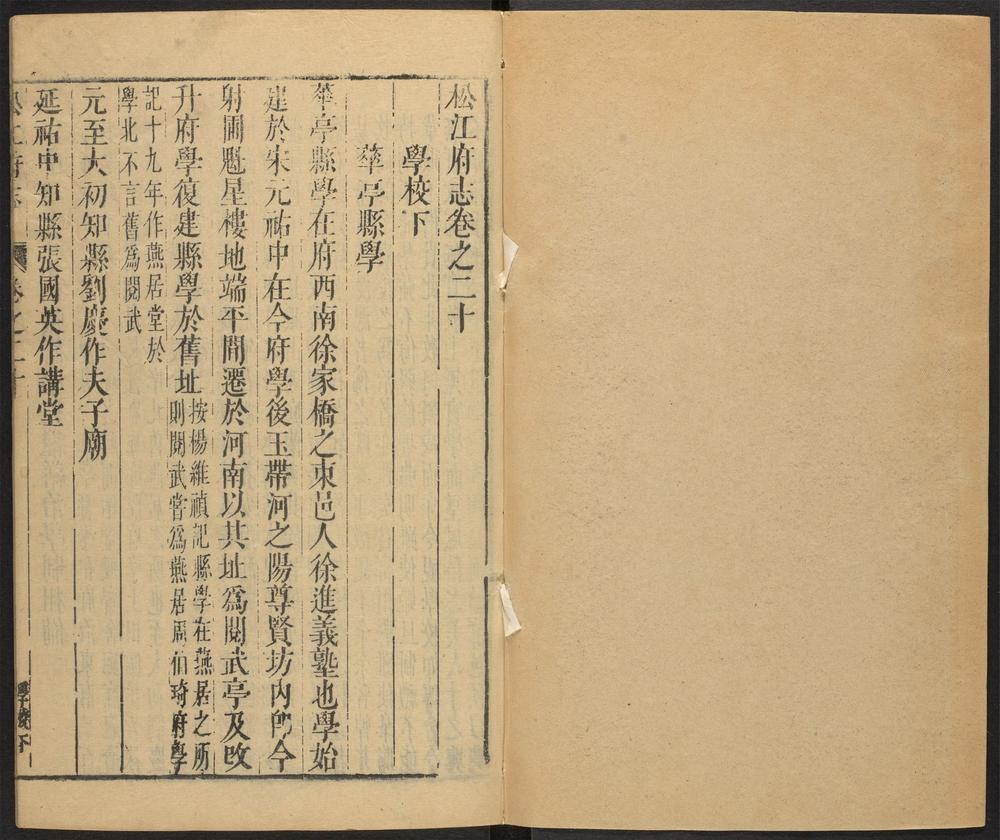 松江府志卷之二十
學校下
華亭縣學
華亭縣學在府西南徐家橋之東邑人徐進義塾也學始
建於宋元祐中在今府學後玉帶河之陽尊賢坊內卽今
射圃魁星樓地端平間遷於河南以其址爲閱武亭及改
升府學復建縣學於舊址
按楊維禎記縣學在燕居之所
則閱武嘗爲燕居周伯琦府學
記十九年作燕居堂於
學北不言舊爲閱武
元至大初知縣劉慶作夫子廟
延祐中知縣張國英作講堂
松江府志
卷之二十
學校下